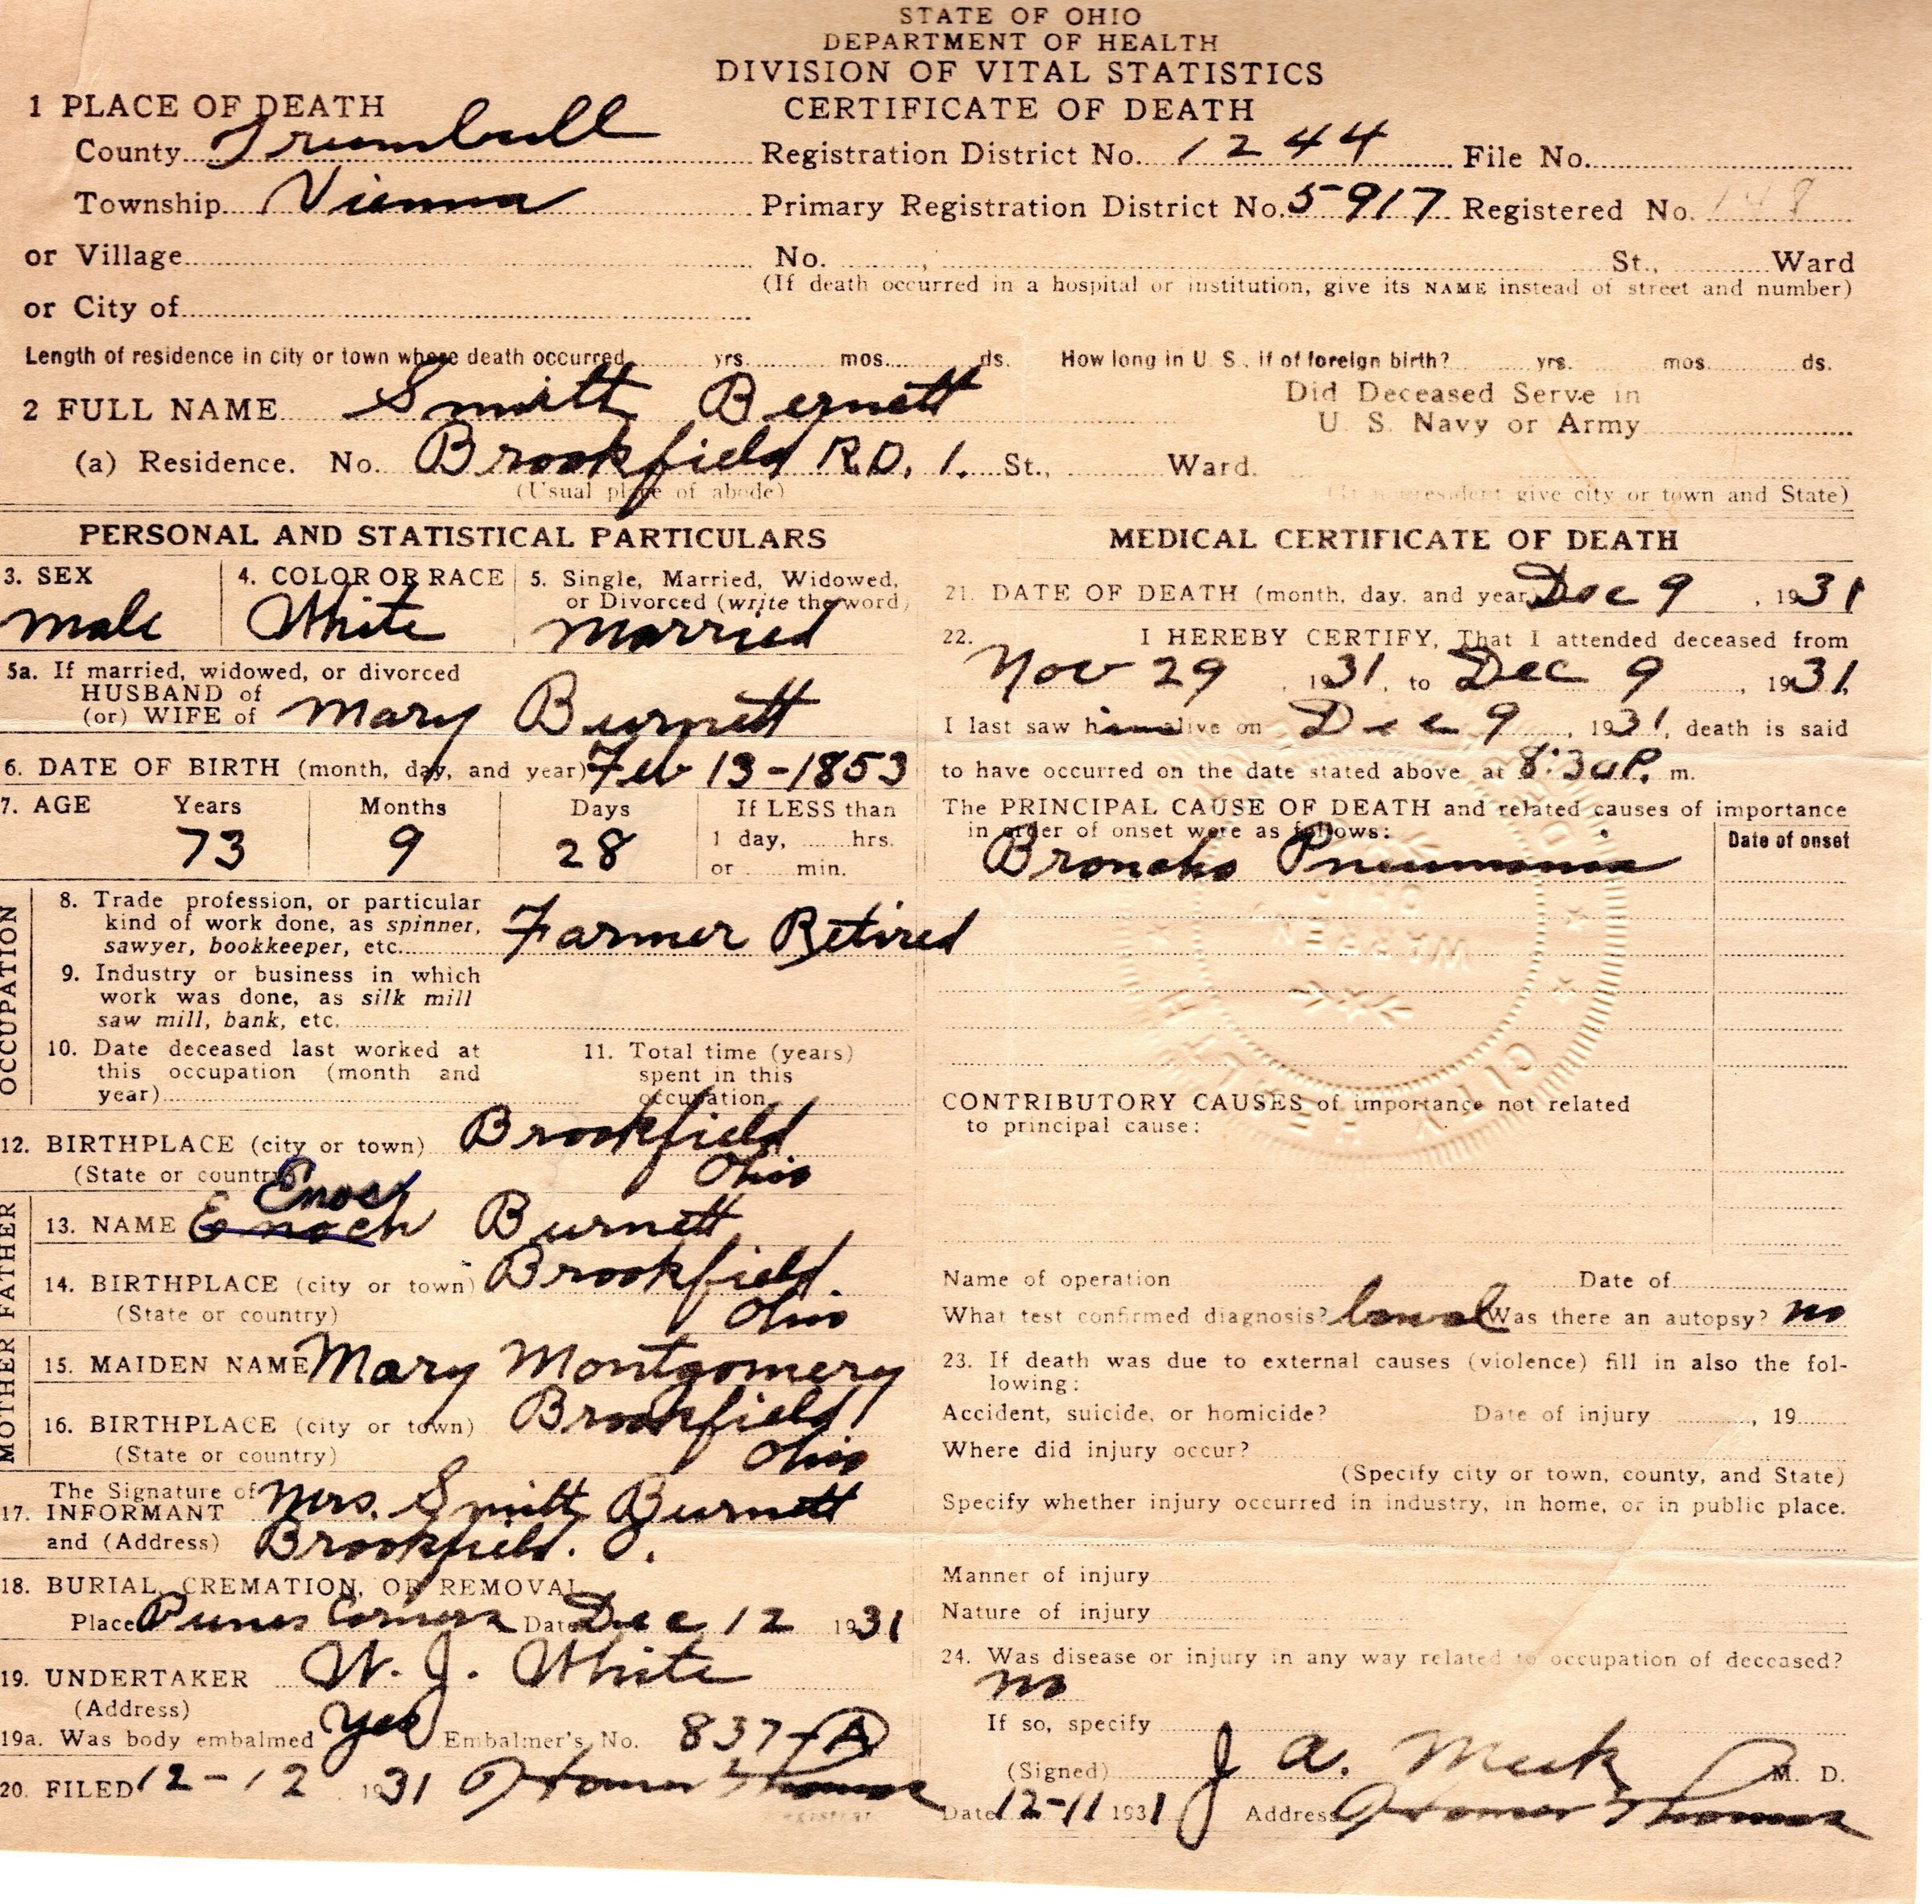 STATE OF OHIO
DEPARTMENT OF HEALTH
DIVISION OF VITAL STATISTICS
CERTIFICATE OF DEATH
1 PLACE OF DEATH
County Trumbull Registration District No. 1244 File No.
Township Vienna Primary Registration District No. 5917 Registered No.
or Village No. St., Ward
(If death occurred in a hospital or institution, give its NAME instead of street and number)
or City of
Length of residence in city or town where death occurred yrs. mos. ds. How long in U. S., if of foreign birth? yrs. mos. ds.
2 FULL NAME Smith Bernett
Did Deceased Serve in
U. S. Navy or Army
(a) Residence. No. Brookfield R.D. 1. St., Ward.
(Usual place of abode) (If nonresident give city or town and State)
PERSONAL AND STATISTICAL PARTICULARS
3. SEX 4. COLOR OR RACE 5. Single, Married, Widowed,
or Divorced (write the word)
male White married
5a. If married, widowed, or divorced
HUSBAND of
(or) WIFE of Mary Burnett
6. DATE OF BIRTH (month, day, and year) Feb 13-1853
7. AGE Years Months Days If LESS than
73 9 28 1 day, hrs.
or min.
OCCUPATION
8. Trade profession, or particular
kind of work done, as spinner,
sawyer, bookkeeper, etc. Farmer Retired
9. Industry or business in which
work was done, as silk mill
saw mill, bank, etc.
10. Date deceased last worked at
this occupation (month and
year)
11. Total time (years)
spent in this
occupation
12. BIRTHPLACE (city or town) Brookfield
(State or country) Ohio
FATHER
Enoch
13. NAME Enoch Burnett
14. BIRTHPLACE (city or town) Brookfield
(State or country) Ohio
MOTHER
15. MAIDEN NAME Mary Montgomery
16. BIRTHPLACE (city or town) Brookfield
(State or country) Ohio
The Signature of Mrs. Smith Burnett
17. INFORMANT
and (Address) Brookfield. O.
18. BURIAL, CREMATION, OR REMOVAL
Place Corners Date Dec 12 1931
19. UNDERTAKER W. J. White
(Address)
19a. Was body embalmed Yes Embalmer's No. 837-A
20. FILED 12-12 1931 Homer Thomas
Registrar
MEDICAL CERTIFICATE OF DEATH
21. DATE OF DEATH (month, day, and year) Dec 9, 1931
22. I HEREBY CERTIFY, That I attended deceased from
Nov 29, 1931, to Dec 9, 1931,
I last saw him alive on Dec 9, 1931, death is said
to have occurred on the date stated above at 8:30 P. m.
The PRINCIPAL CAUSE OF DEATH and related causes of importance
in order of onset were as follows:
Date of onset
Broncho Pneumonia
CONTRIBUTORY CAUSES of importance not related
to principal cause:
Name of operation Date of
What test confirmed diagnosis? Was there an autopsy? no
23. If death was due to external causes (violence) fill in also the fol-
lowing:
Accident, suicide, or homicide? Date of injury , 19
Where did injury occur?
(Specify city or town, county, and State)
Specify whether injury occurred in industry, in home, or in public place.
Manner of injury
Nature of injury
24. Was disease or injury in any way related to occupation of deceased?
no
If so, specify
(Signed) J A. Meek M. D.
Date 12-11 1931 Address Homer Thomas
CITY HEALTH
WARREN
OHIO